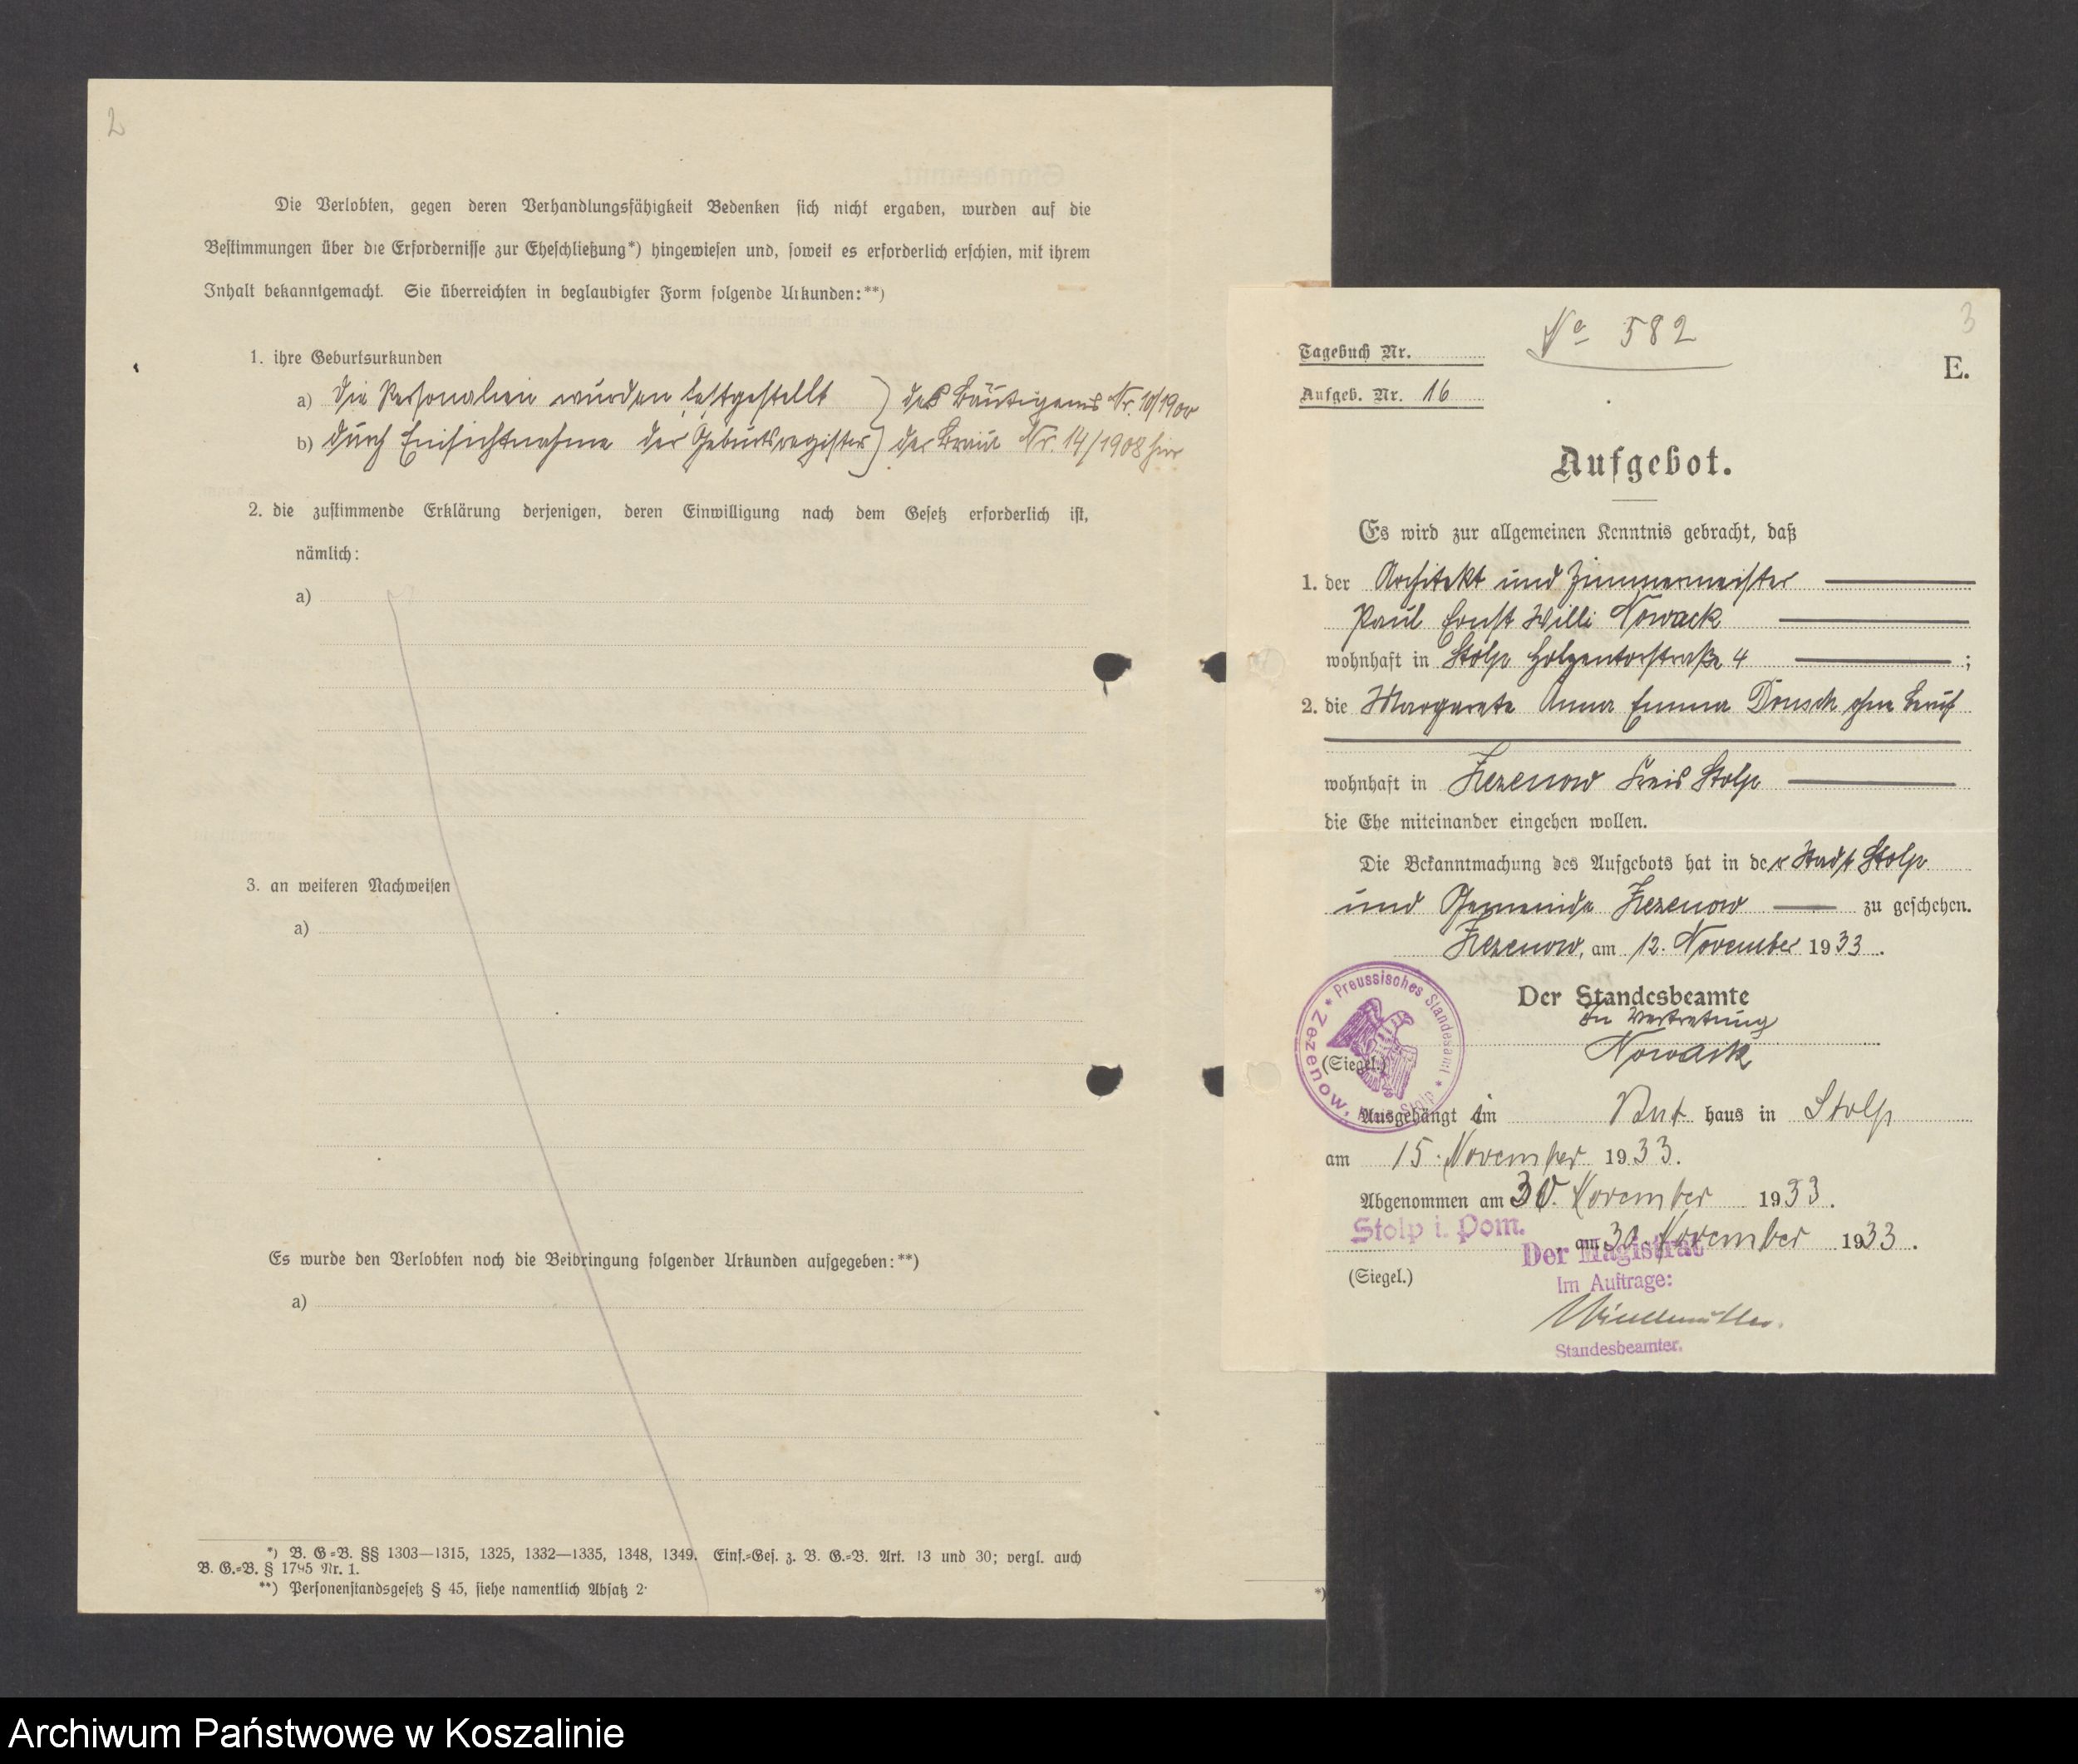 2
Die Verlobten, gegen deren Verhandlungsfähigkeit Bedenken sich nicht ergaben, wurden auf die
Bestimmungen über die Erfordernisse zur Eheschließung*) hingewiesen und, soweit es erforderlich erschien, mit ihrem
Inhalt bekanntgemacht. Sie überreichten in beglaubigter Form folgende Urkunden:**)
1. ihre Geburtsurkunden
a) Die Personalien wurden festgestellt ) des Bräutigams Nr. 10/1900
b) durch Einsichtnahme der Geburtsregister ) der Braut Nr. 14/1908 hier
2. die zustimmende Erklärung derjenigen, deren Einwilligung nach dem Gesetz erforderlich ist,
nämlich:
a)
3. an weiteren Nachweisen
a)
Es wurde den Verlobten noch die Beibringung folgender Urkunden aufgegeben:**)
a)
*) B. G=B. §§ 1303—1315, 1325, 1332—1335, 1348, 1349. Einf.=Ges. z. B. G.=B. Art. 13 und 30; vergl. auch
B. G.=B. § 1795 Nr. 1.
**) Personenstandsgesetz § 45, siehe namentlich Absatz 2.
*)
3
No 582
Tagebuch Nr.
E.
Aufgeb. Nr. 16
Aufgebot.
Es wird zur allgemeinen Kenntnis gebracht, daß
1. der Architekt und Zimmermeister
Paul Ernst Willi Nowack
wohnhaft in Stolp Holzentorstraße 4 ;
2. die Margarete Anna Emma Donsch ohne Beruf
wohnhaft in Zezenow Kreis Stolp
die Ehe miteinander eingehen wollen.
Die Bekanntmachung des Aufgebots hat in der Stadt Stolp
und Gemeinde Zezenow zu geschehen.
Zezenow, am 12. November 1933.
Der Standesbeamte
In Vertretung
Nowack
(Siegel.)
Preussisches Standesamt * Zezenow, Kreis Stolp *
Ausgehängt im Rathaus in Stolp
am 15. November 1933.
Abgenommen am 30. November 1933.
Stolp i. Pom. am 30. November 1933.
Der Magistrat
(Siegel.)
Im Auftrage:
Standesbeamter.
Archiwum Państwowe w Koszalinie